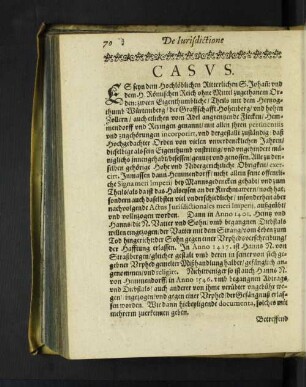 70
De Iurisdictione
CASVS.
ES seyn dem Hochlöblichen Ritterlichen S. Johañ: vnd
dem H. Römischen Reich ohne Mittel zugethanem Or-
den: zween Eigenthumbliche / Theils mit dem Hertzog-
thumb Würtenberg / der Graffschafft Hohenberg / vnd hohen
Zollern / auch etlichen vom Adel angrentzende Flecken / Hem-
mendorff vnd Rexingen genannt / mit allen ihren pertinentiis
vnd zugehörungen incorporirt, vnd dergestallt zuständig / daß
Hochgedachter Orden von vielen vnverdencklichen Jahren
dieselbige als sein Eigenthumb vnstrittig vnd vngehindert män-
nigliches innengehabt / besessen / genutzt vnd genossen / auch alle
deroselben gehörige Hohe vnd Nidergerichtliche Obrigkeit exer-
cirt. Inmassen dann Hemmendorff nicht allein seine offentli-
che Signa meri Imperii bey Mannsgedencken gehabt / vnd zum
Theils / als daß das Halseysen an der Kirchmauren / noch hat,
sondern auch daselbsten viel vnderschiedliche in einander hero
nachvolgende Actus Jurisdictionales meri Imperii, außgeübt
vnd vollnzogen worden. Dann in Anno 1400. Henn vnd
Hanns die N. Vatter vnd Sohn / vmb begangnen Diebstals
willen eingezogen / der Vatter mit dem Strang vom leben zum
Tod hingericht / der Sohn gegen einer Vrphedverschreibung
der Hafftung erlassen. In Anno 1457. ist Hanns N. von
Straßbergen / gleicher gestalt vnd deren in seiner von sich ge-
gebner Vrphed gemelter Mißhandlung halber / gefänglich an-
genommen / vnd religirt. Nichtweniger so ist auch Hanns N.
von Hemmendorff / in Anno 1540. vmb begangnen Abtrags
vnd Diebstals / auch anderer von ihme verübter vngebühr we-
gen / eingezogen / vnd gegen einer Vrphed der Gefängnuß erlas-
sen worden. Wie dann hiebeyligende documenta, solches mit
mehrerm zuerkennen geben.
Betreffend